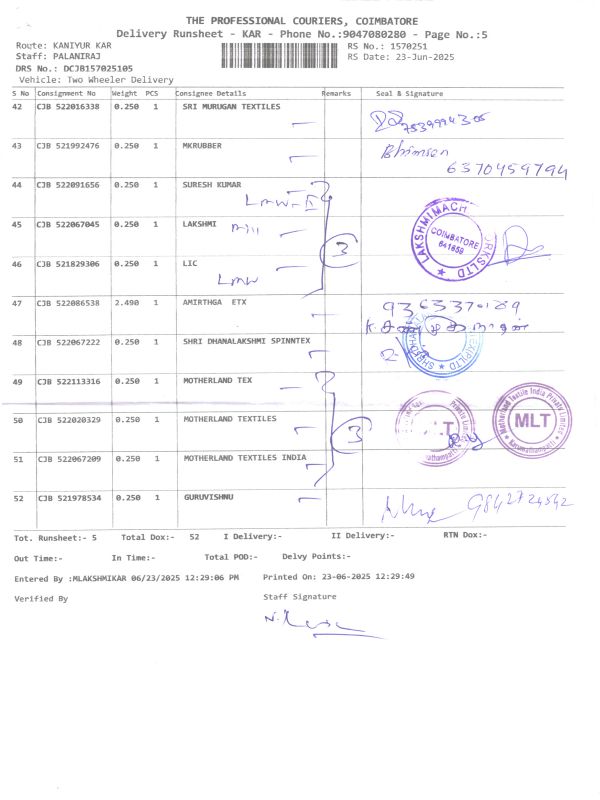 THE PROFESSIONAL COURIERS, COIMBATORE
Delivery Runsheet - KAR - Phone No.:9047080280 - Page No.:5
Route: KANIYUR KAR RS No.: 1570251
Staff: PALANIRAJ RS Date: 23-Jun-2025
DRS No.: DCJB157025105
Vehicle: Two Wheeler Delivery
S No Consignment No Weight PCS Consignee Details Remarks Seal & Signature
42 CJB 522016338 0.250 1 SRI MURUGAN TEXTILES
7539994305
43 CJB 521992476 0.250 1 MKRUBBER
Bhimsen
6370459794
44 CJB 522091656 0.250 1 SURESH KUMAR
LMW-II
45 CJB 522067045 0.250 1 LAKSHMI Mill
LAKSHMI MACH WORKS LTD
COIMBATORE
641659
3
46 CJB 521829306 0.250 1 LIC
LMW
47 CJB 522086538 2.490 1 AMIRTHGA ETX
48 CJB 522067222 0.250 1 SHRI DHANALAKSHMI SPINNTEX
49 CJB 522113316 0.250 1 MOTHERLAND TEX
50 CJB 522020329 0.250 1 MOTHERLAND TEXTILES
3
Motherland Textile India Private Limited
MLT
Karumathampatti
51 CJB 522067209 0.250 1 MOTHERLAND TEXTILES INDIA
52 CJB 521978534 0.250 1 GURUVISHNU
9842724542
Tot. Runsheet:- 5 Total Dox:- 52 I Delivery:- II Delivery:- RTN Dox:-
Out Time:- In Time:- Total POD:- Delvy Points:-
Entered By :MLAKSHMIKAR 06/23/2025 12:29:06 PM Printed On: 23-06-2025 12:29:49
Verified By Staff Signature